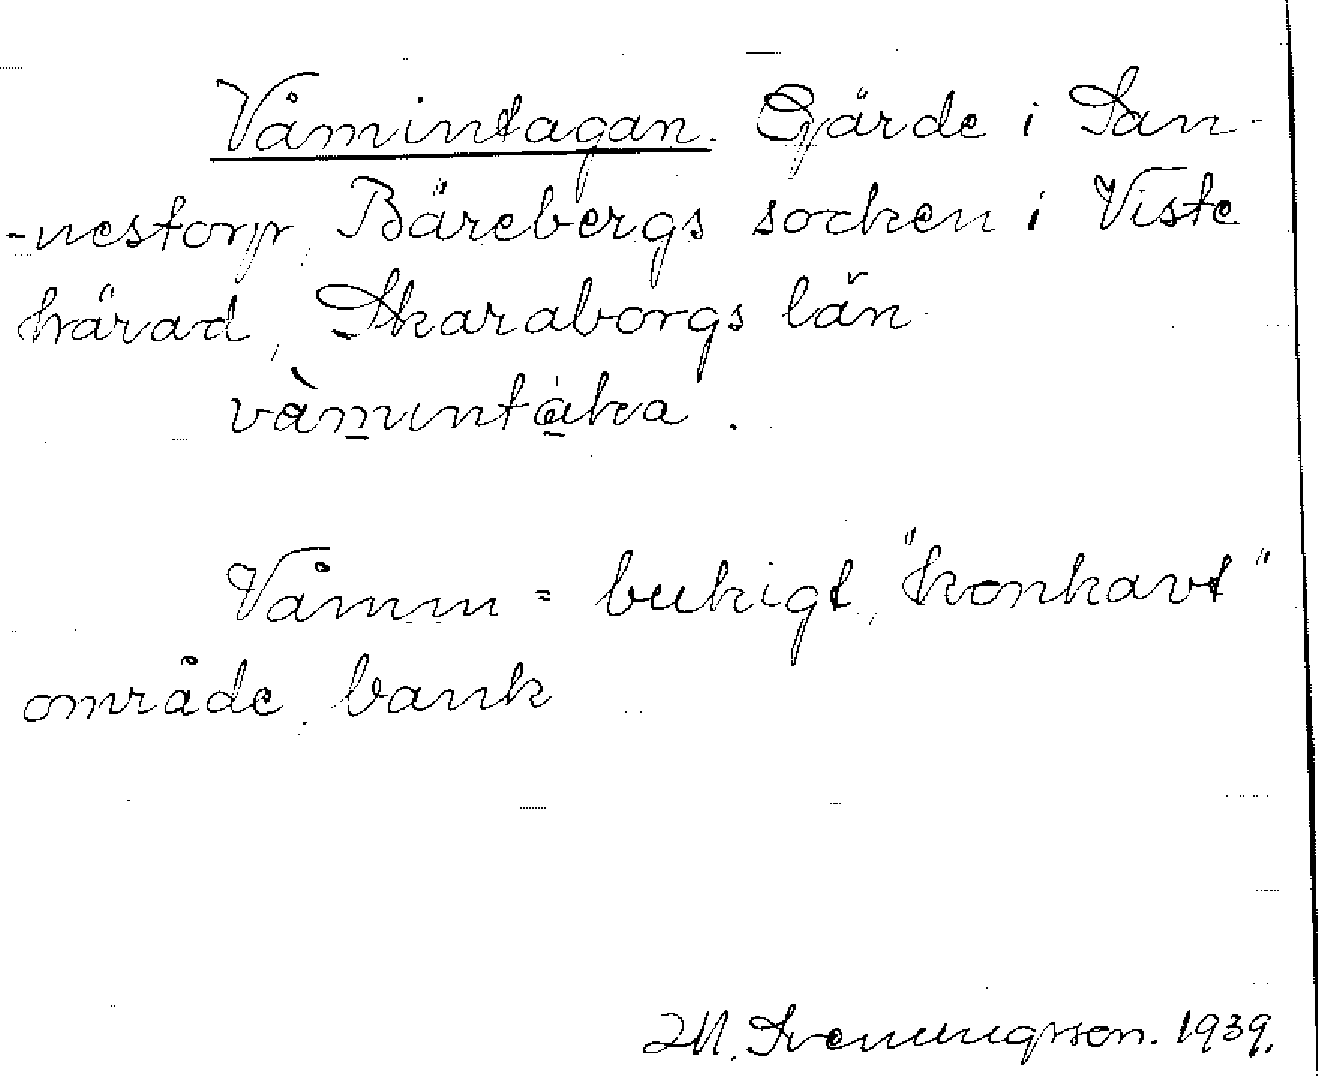 Våmintagan. Gärde i San-
-nestorp, Bärebergs socken i Viste
härad, Skaraborgs län.
vàmıntåka.
Våmm = bukigt, "konkavt"
område, bank
M. Svenungsson. 1939.